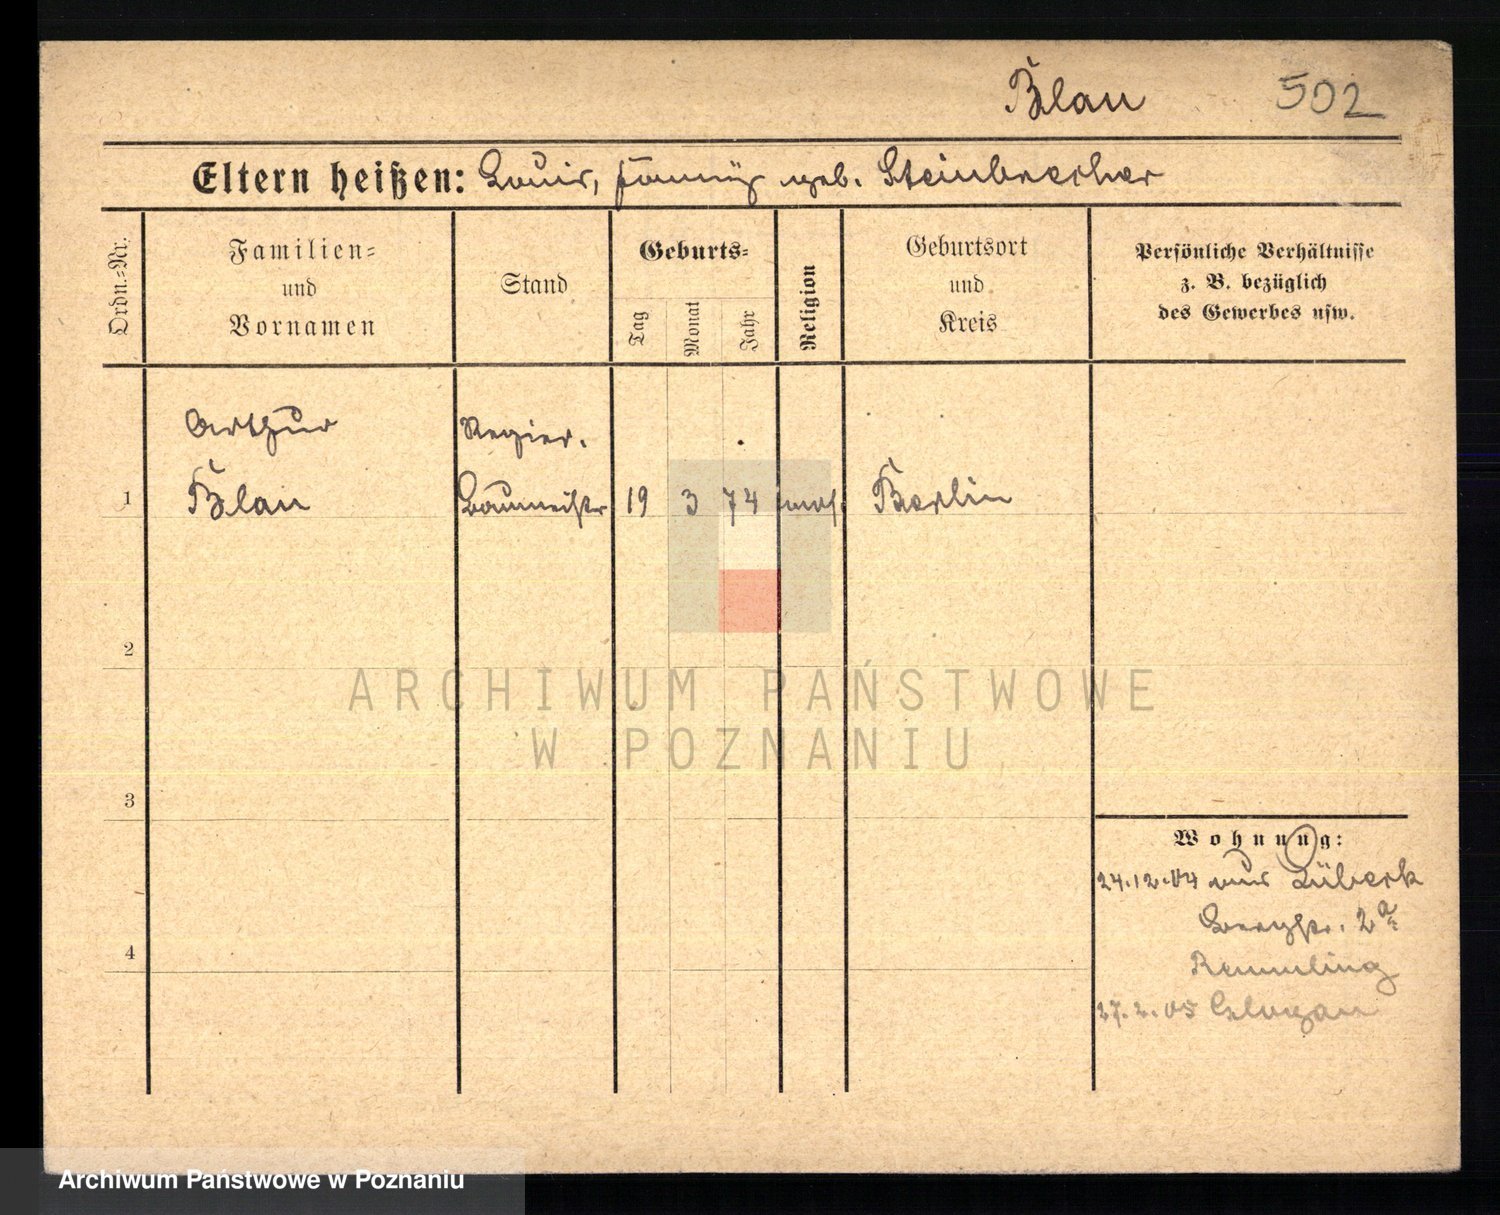 Blau 502
Eltern heißen: Louis, Fanny geb. Steinbrecher
Ordn.-Nr.
Familien-
und
Vornamen
Stand
Geburts-
Tag
Monat
Jahr
Religion
Geburtsort
und
Kreis
Persönliche Verhältnisse
z. B. bezüglich
des Gewerbes usw.
Arthur Regier.
1 Blau Baumeister 19 3 74 mos. Berlin
2
3
4
Wohnung:
24.12.04 aus Lübeck
Bergstr. 2a
Remmling
27.2.05 Glogau
ARCHIWUM PAŃSTWOWE
W POZNANIU
Archiwum Państwowe w Poznaniu